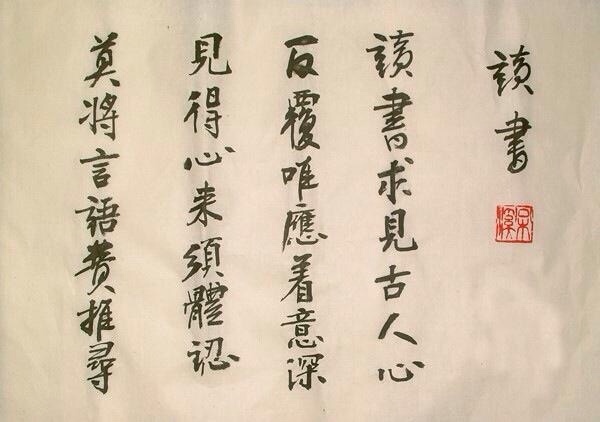 讀書
讀書求見古人心
反覆唯應着意深
見得心来須體認
莫將言語費推尋